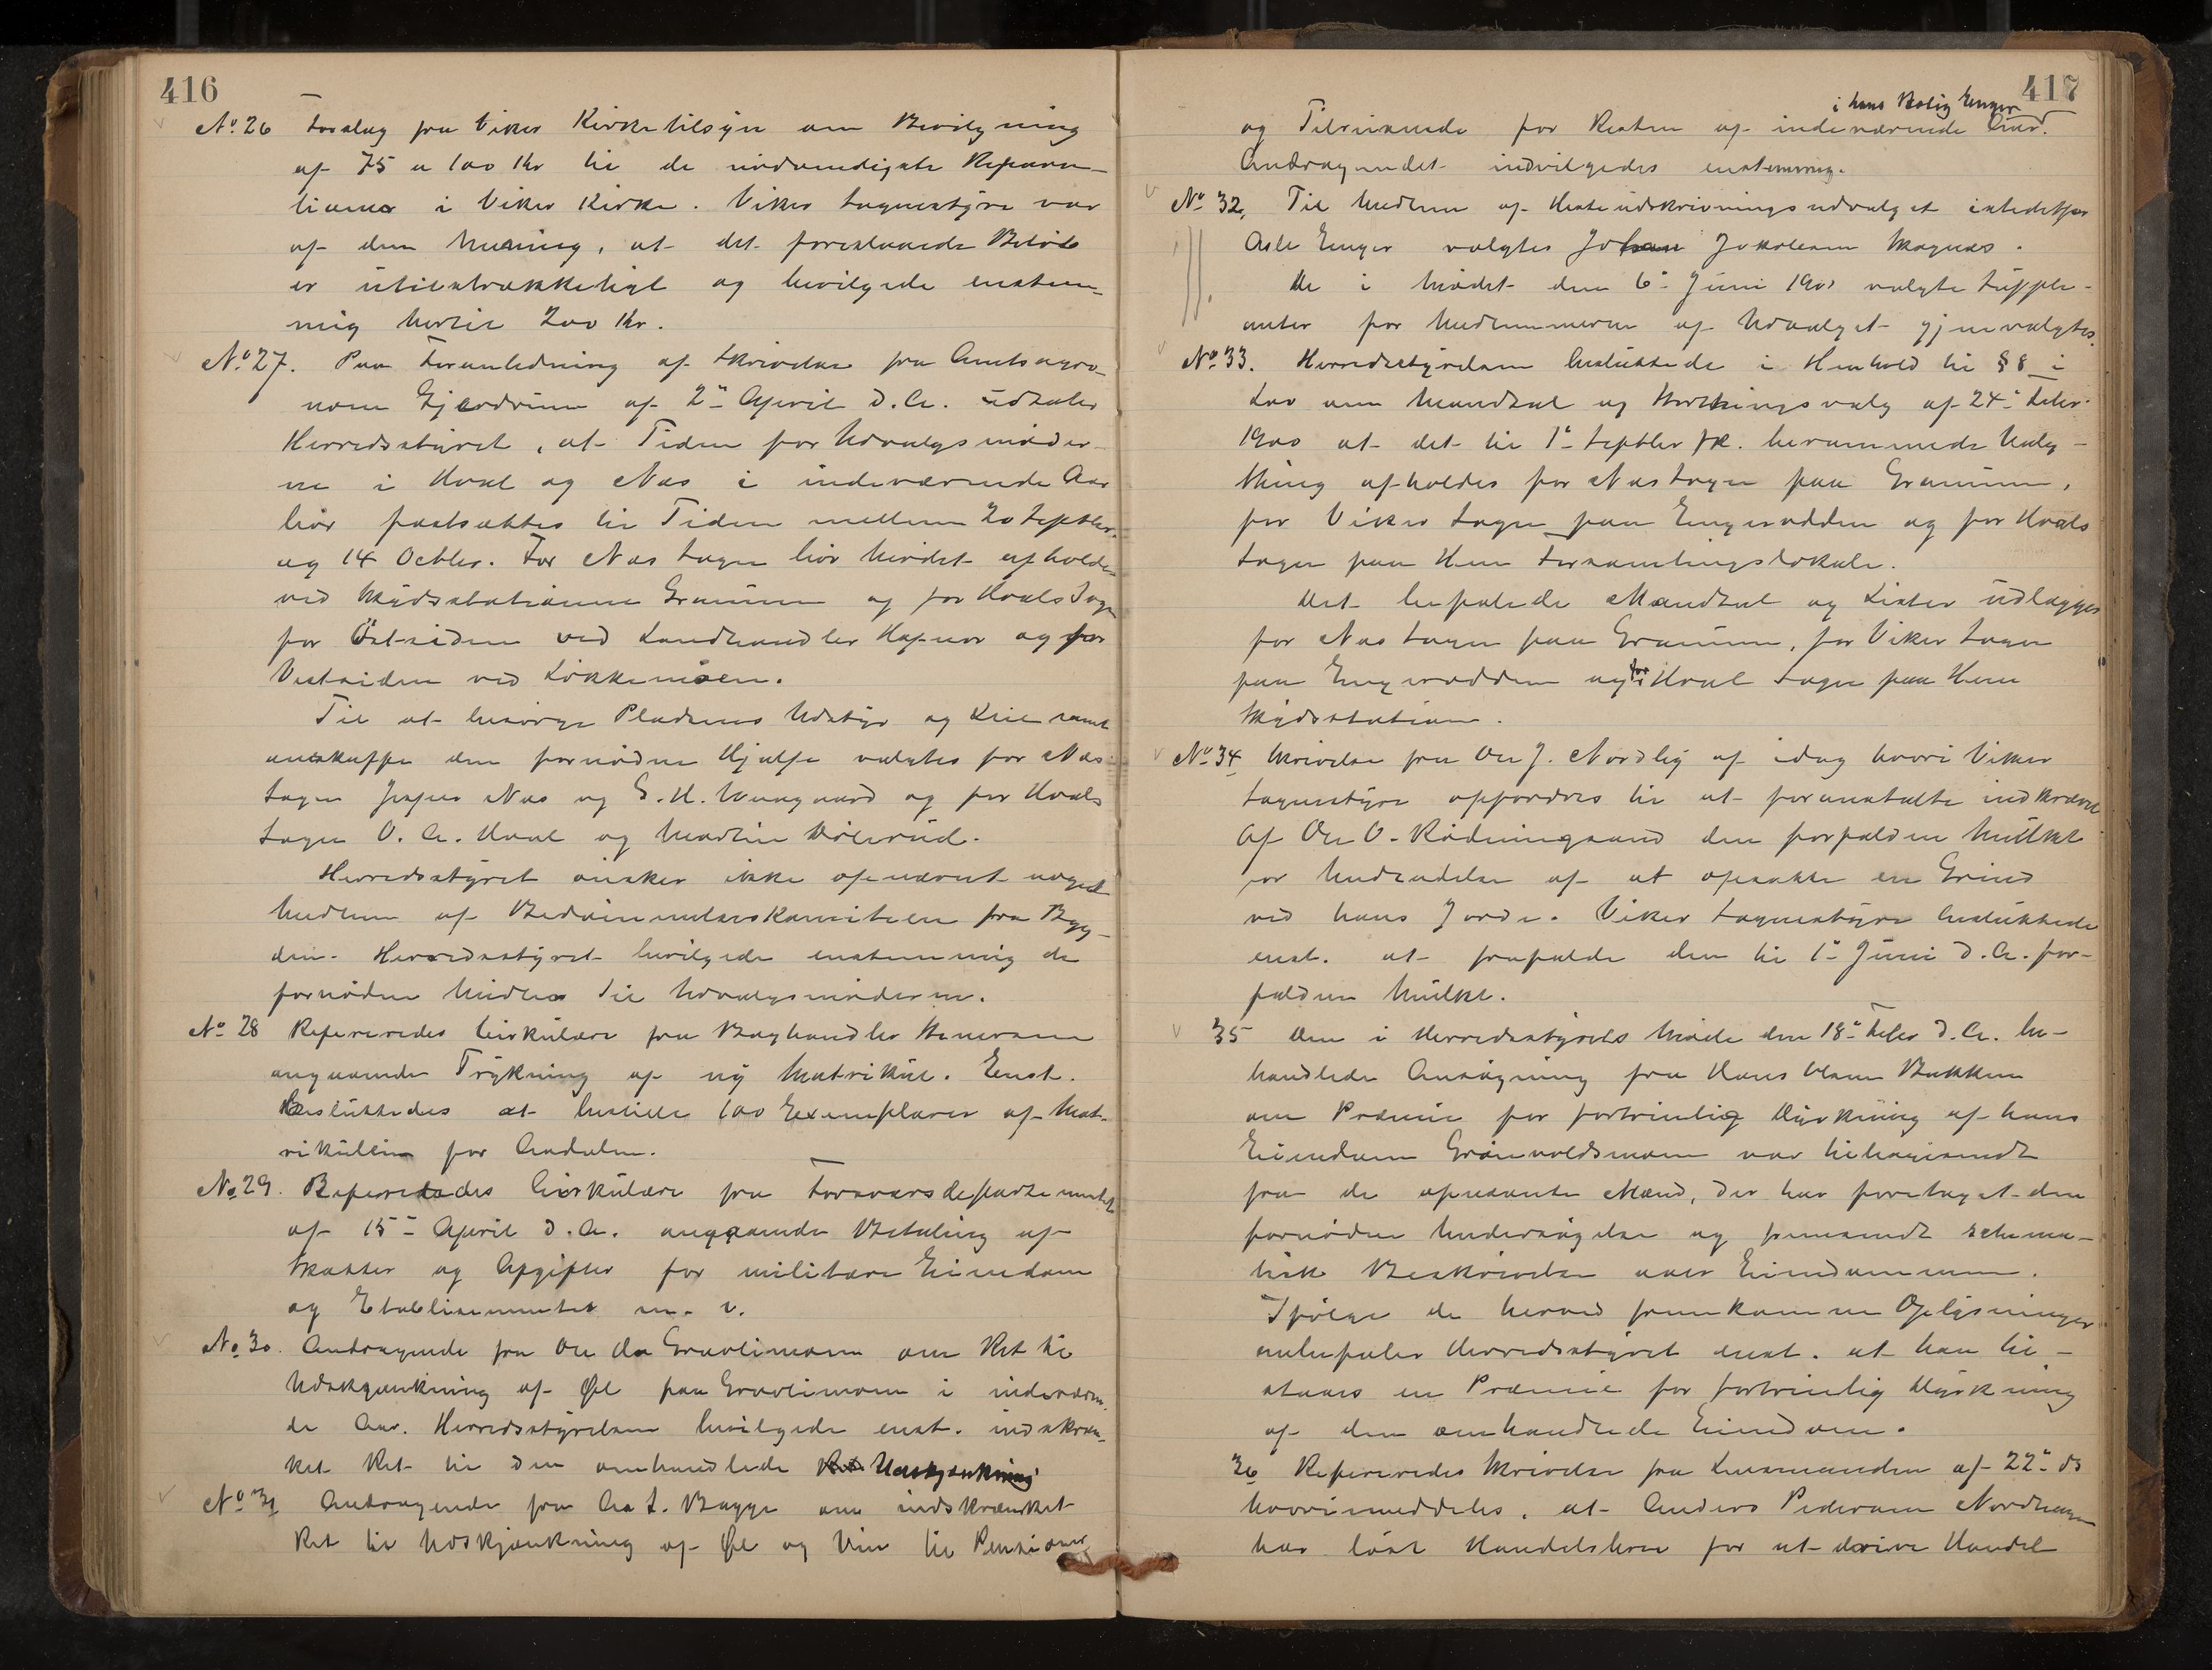 416
No 26 Forslag fra Viker Kirketilsyn om Bevilgning
af 75 a 100 Kr til de nødvendigste Repara-
tioner i Viker Kirke. Viker Sognestyre var
af den Mening, at det foreslaaede Beløb
er utilstrækkeligt og bevilgede enstem-
mig hertil 200 Kr.
No 27. Paa Foranledning af Skrivelse fra Amtsagro-
nom Gjerdrum af 2den April d. A. udtaler
Herredsstyret, at Tiden for Udvalgsmøder-
ne i Hval og Næs i indeværende Aar
bør fastsættes til Tiden mellem 20 Septbr.
og 14 Octbr. For Næs Sogn bør Mødet afholdes
ved Skydsstationen Granum og for Hvals Sogn
for Østsiden ved Landhandler Hafnor og for
Vestsiden ved Løkkemoen.
Til at besørge Pladsens Udstyr og Leie samt
anskaffe den fornødne Hjælp valgtes for Næs
Sogn Jesper Næs og G. H. og for Hvals
Sogn O. A. Hval og Martin
Herredsstyret ønsker ikke opnævnt noget
Medlem af Bedømmelseskomiteen fra Byg-
den. Herredsstyret bevilgede enstemmig de
fornødne Midler til Udvalgsmøderne.
No 28 Refereredes Cirkulære fra Boghandler
angaaende Trykning af ny Matrikul. Enst.
Besluttedes at bestille 100 Exemplarer af Mat-
rikullen for Aadalen.
No 29. Refereredes Cirkulære fra Forsvarsdepartementet
af 15de April d. A. angaaende Betaling af
Skatter og Afgifter for militære Eiendom
og Etablisementet m. v.
No 30. Andragende fra Ole Gravlimoen om Ret til
Udskjænkning af Øl paa Gravlimoen i indeværen-
de Aar. Herredsstyrelsen bevilgede enst. indskræn-
ket Ret til den omhandlede Ret Udskjænkning
No 31 Andragende fra As L. Bagge om indskrænket
Ret til Udskjænkning af Øl og Vin til Pensionær
417
i hans Bolig Enger
og Tilreisende for Resten af indeværende Aar.
Andragendet indvilgedes enstemmig.
No 32, Til Medlem af Hesteudskrivningsudvalget istedetfor
Asle Enger valgtes Johan Jakobsen Skagnæs.
De i Mødet den 6te Juni 1901 valgte Supple-
anter for Medlemmerne af Udvalget gjenvalgtes.
No 33. Herredsstyrelsen besluttede i Henhold til § 8 i
Lov om Mandtal og Storthingsvalg af 24de Febr.
1900 at det til 1ste Septbr fk. berammede Valg-
thing afholdes for Næs Sogn paa Granum,
for Viker Sogn paa Engerodden og for Hvals
Sogn paa Hen Forsamlingslokale.
Det befalede Mandtal og Lister udlægges
for Næs Sogn paa Granum, for Viker Sogn
paa Engerodden og for Hval Sogn paa Hen
Skydsstation.
No 34 Skrivelse fra Ole J. Nordby af idag hvori Viker
Sognestyre opfordres til at foranstalte indkrævet
af Ole O. Rødningsand den forfaldne Mulkt
for Undladelse af at opsætte en Grind
ved hans Jorde. Viker Sognestyre besluttede
enst. at frafalde den til 1ste Juni d. A. for-
faldne Mulkt.
35 Den i Herredsstyrets Møde den 18de Febr d. A. be-
handlede Ansøgning fra Hans Olsen Bakken
om Præmie for fortrinlig Dyrkning af hans
Eiendom Grønvoldsmoen var tilbagesendt
fra de opnævnte Mænd, der har foretaget den
fornødne Undersøgelse og fremsendt schema-
tisk Beskrivelse over Eiendommen.
Ifølge de herved fremkomne Oplysninger
anbefaler Herredsstyret enst. at han til-
staaes en Præmie for fortrinlig Dyrkning
af den omhandlede Eiendom.
36 Refereredes Skrivelse fra Lensmanden af 22de ds
hvori meddeles, at Anders Pedersen Nordhagen
har løst Handelsbrev for at drive Handel